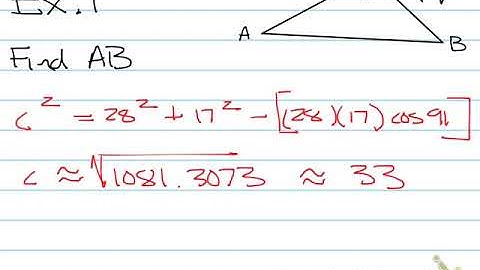 Ex.1
A
B
Find AB
c² = 28² + 17² - [(28)(17) cos 91]
c ≈ √1081.3073 ≈ 33